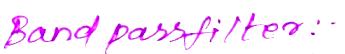 Band passfilter:-